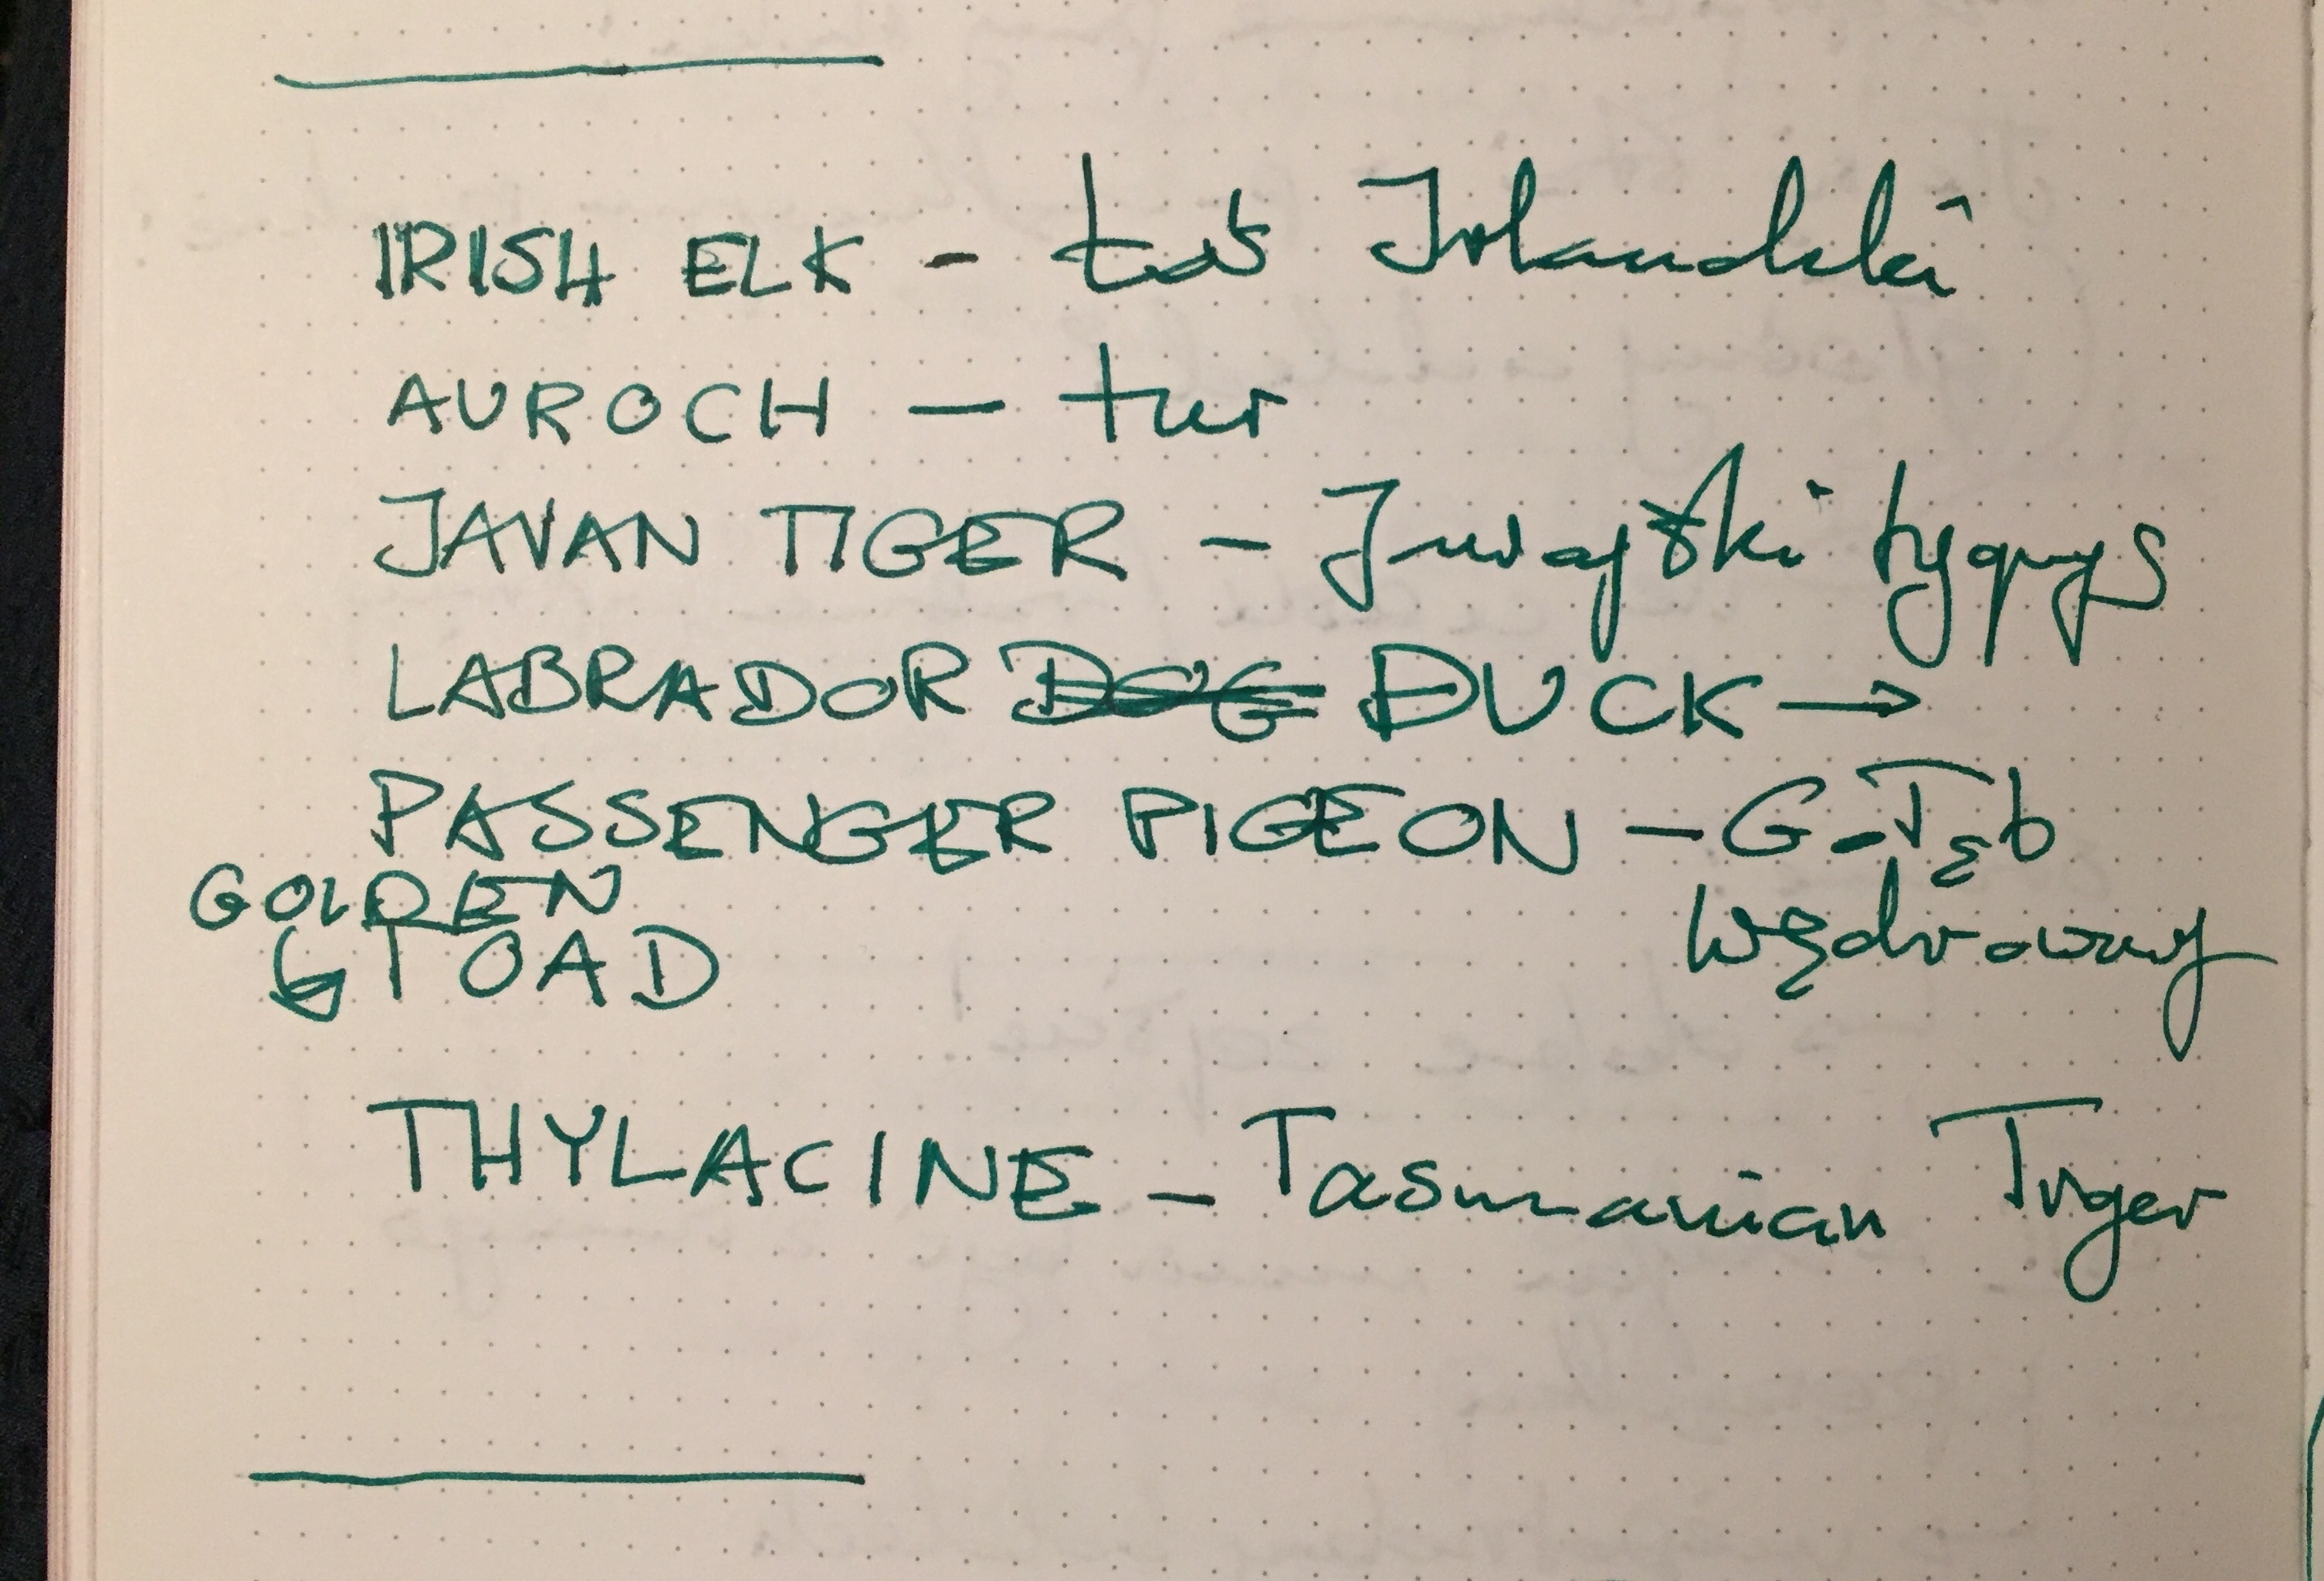 IRISH ELK - Łoś Irlandzki
AUROCH - tur
JAVAN TIGER - Jawajski tygrys
LABRADOR DOG DUCK →
PASSENGER PIGEON - Gołęb
GOLDEN wędrowny
↳ TOAD
THYLACINE - Tasmanian Tiger